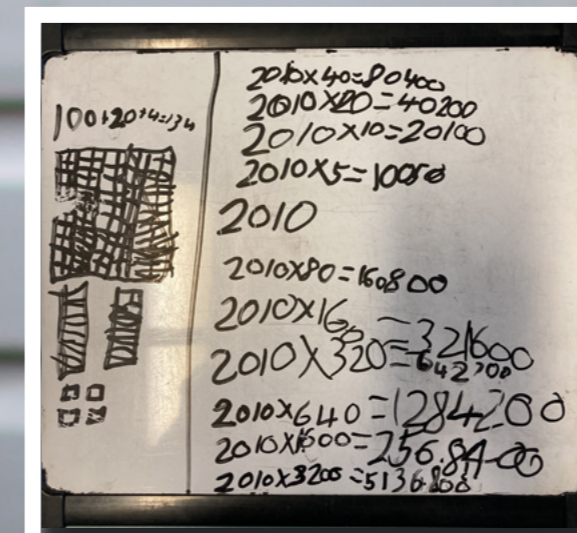 100+20+4=134
2010x40=80400
2010x20=40200
2010x10=20100
2010x5=10050
2010
2010x80=160800
2010x160=321600
2010x320=642700
2010x640=1284200
2010x1600=256.8400
2010x3200=5136800